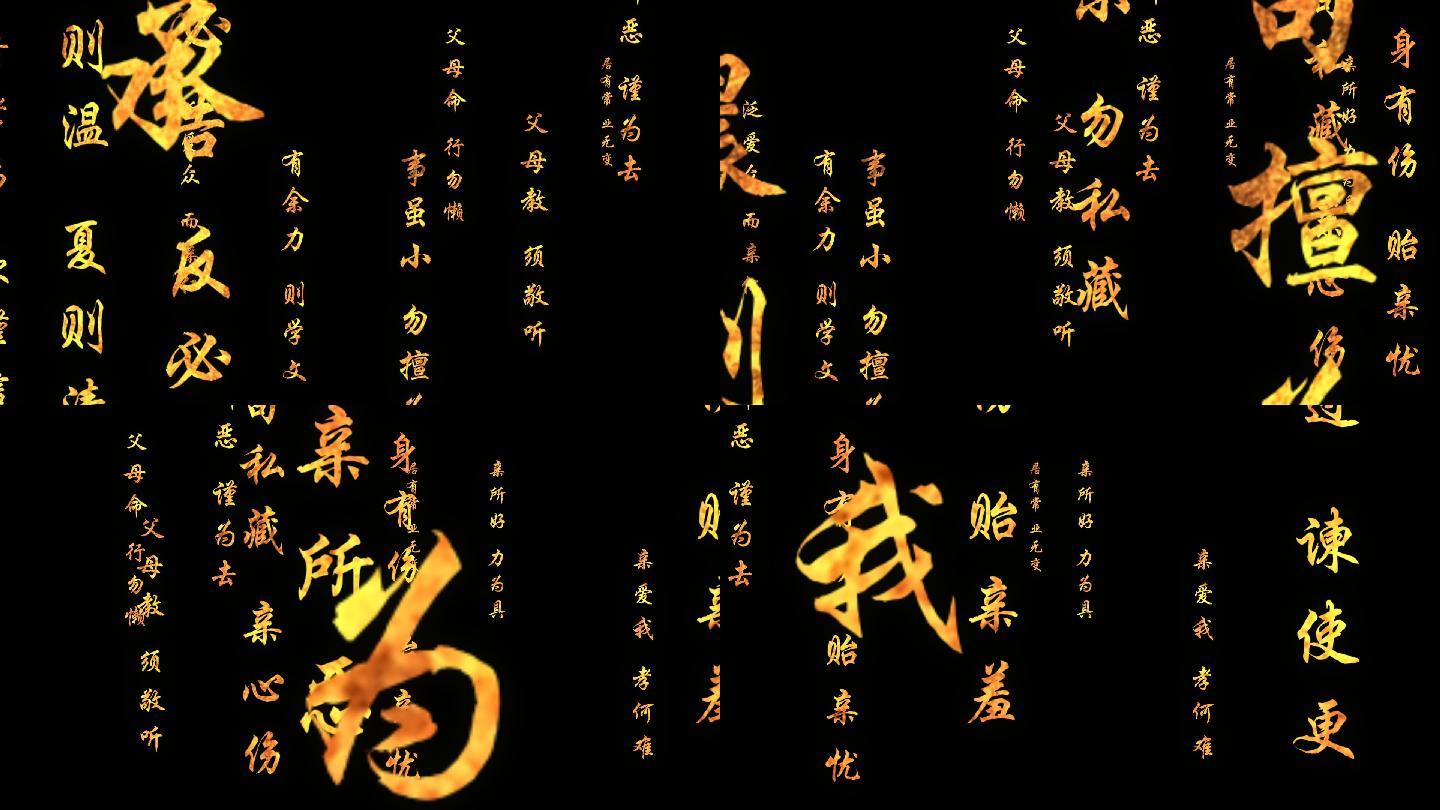 则温 夏则清
承
告 反必
众 而亲
有余力 则学文
事虽小 勿擅
父母命 行勿懒
父母教 须敬听
居有常 业无变
恶 谨为去
晨
泛爱众 而亲
则
有余力 则学文
事虽小 勿擅
父母命 行勿懒
父母教 须敬听
勿私藏
恶 谨为去
居有常 业无变
擅
私藏 心伤
亲所好 力
身有伤 贻亲忧
父母命 行勿懒
父母教 须敬听
恶 谨为去
私藏 亲心伤
亲所恶
为
身有伤 贻亲忧
居有常 业无变
亲所好 力为具
亲爱我 孝何难
则 亲羞
恶 谨为去
身有 贻亲忧
我
贻亲羞
居有常 业无变
亲所好 力为具
亲爱我 孝何难
过 谏使更